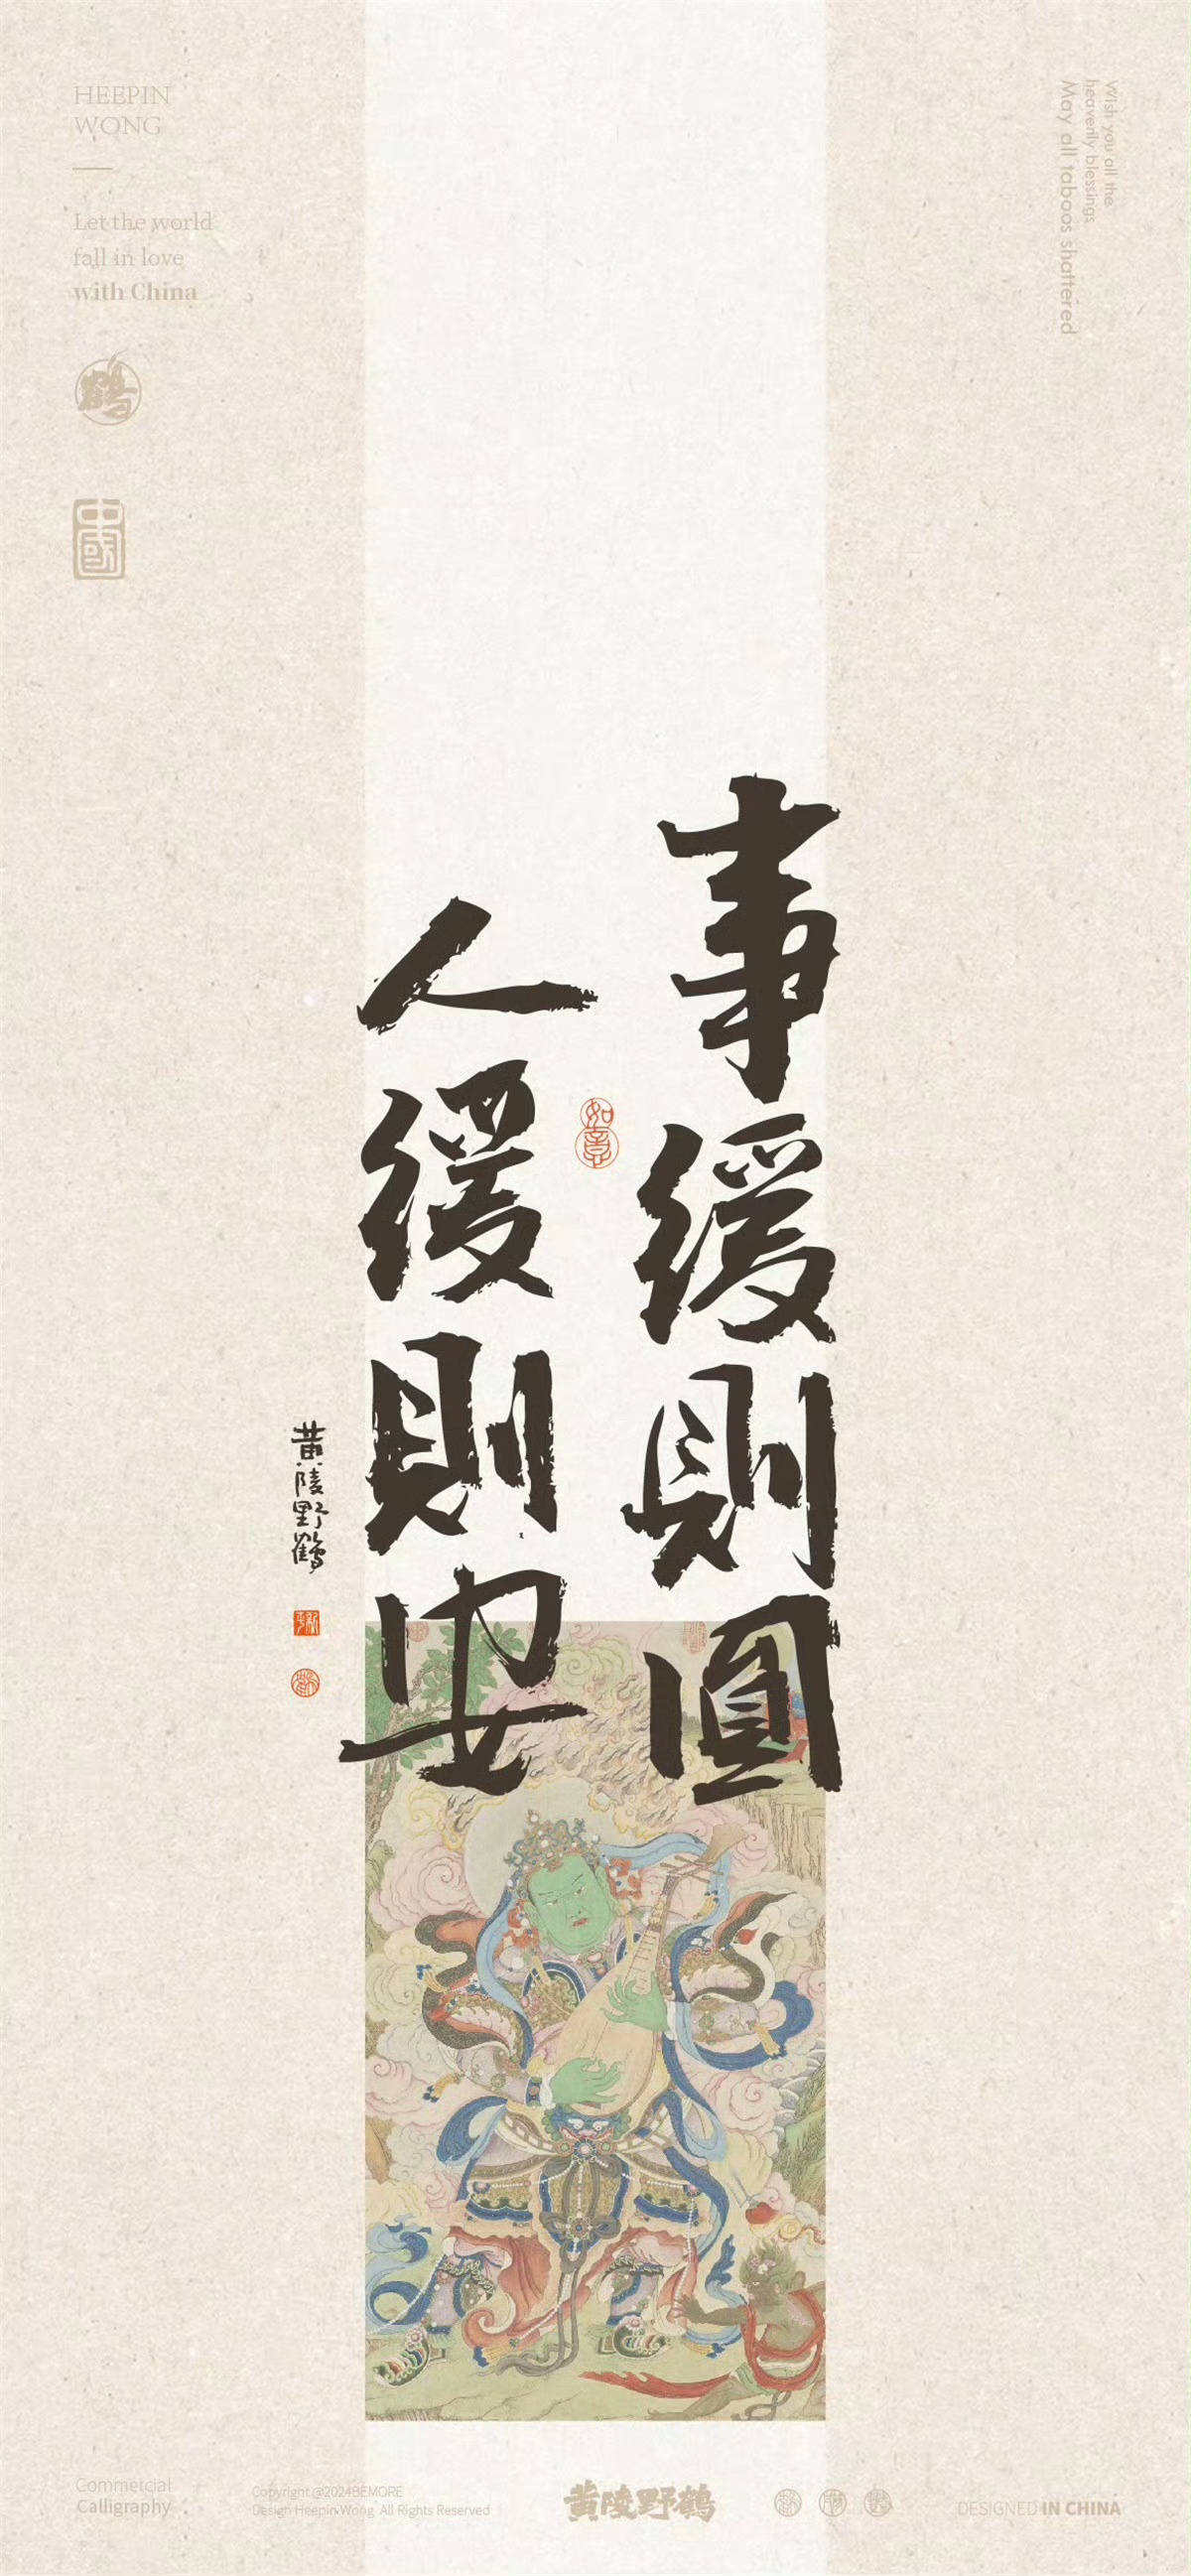 HEEPIN
WONG
Let the world
fall in love
with China
鶴
中國
Wish you all the
heavenly blessings
May all taboos shattered
事緩則圓
人緩則安
如意
黄陵野鶴
Commercial
Calligraphy
Copyright @2024BEMORE
Design Heepin Wong All Rights Reserved
黄陵野鶴
DESIGNED IN CHINA